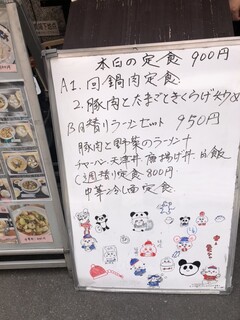 本日の定食 900円
A1.回鍋肉定食
2.豚肉とたまごときくらげ炒め
B日替りラーメンセット 950円
豚肉と野菜のラーメン+
チャーハン 天津丼 唐揚げ丼 白飯
C週替り定食 800円
中華冷し面 定食